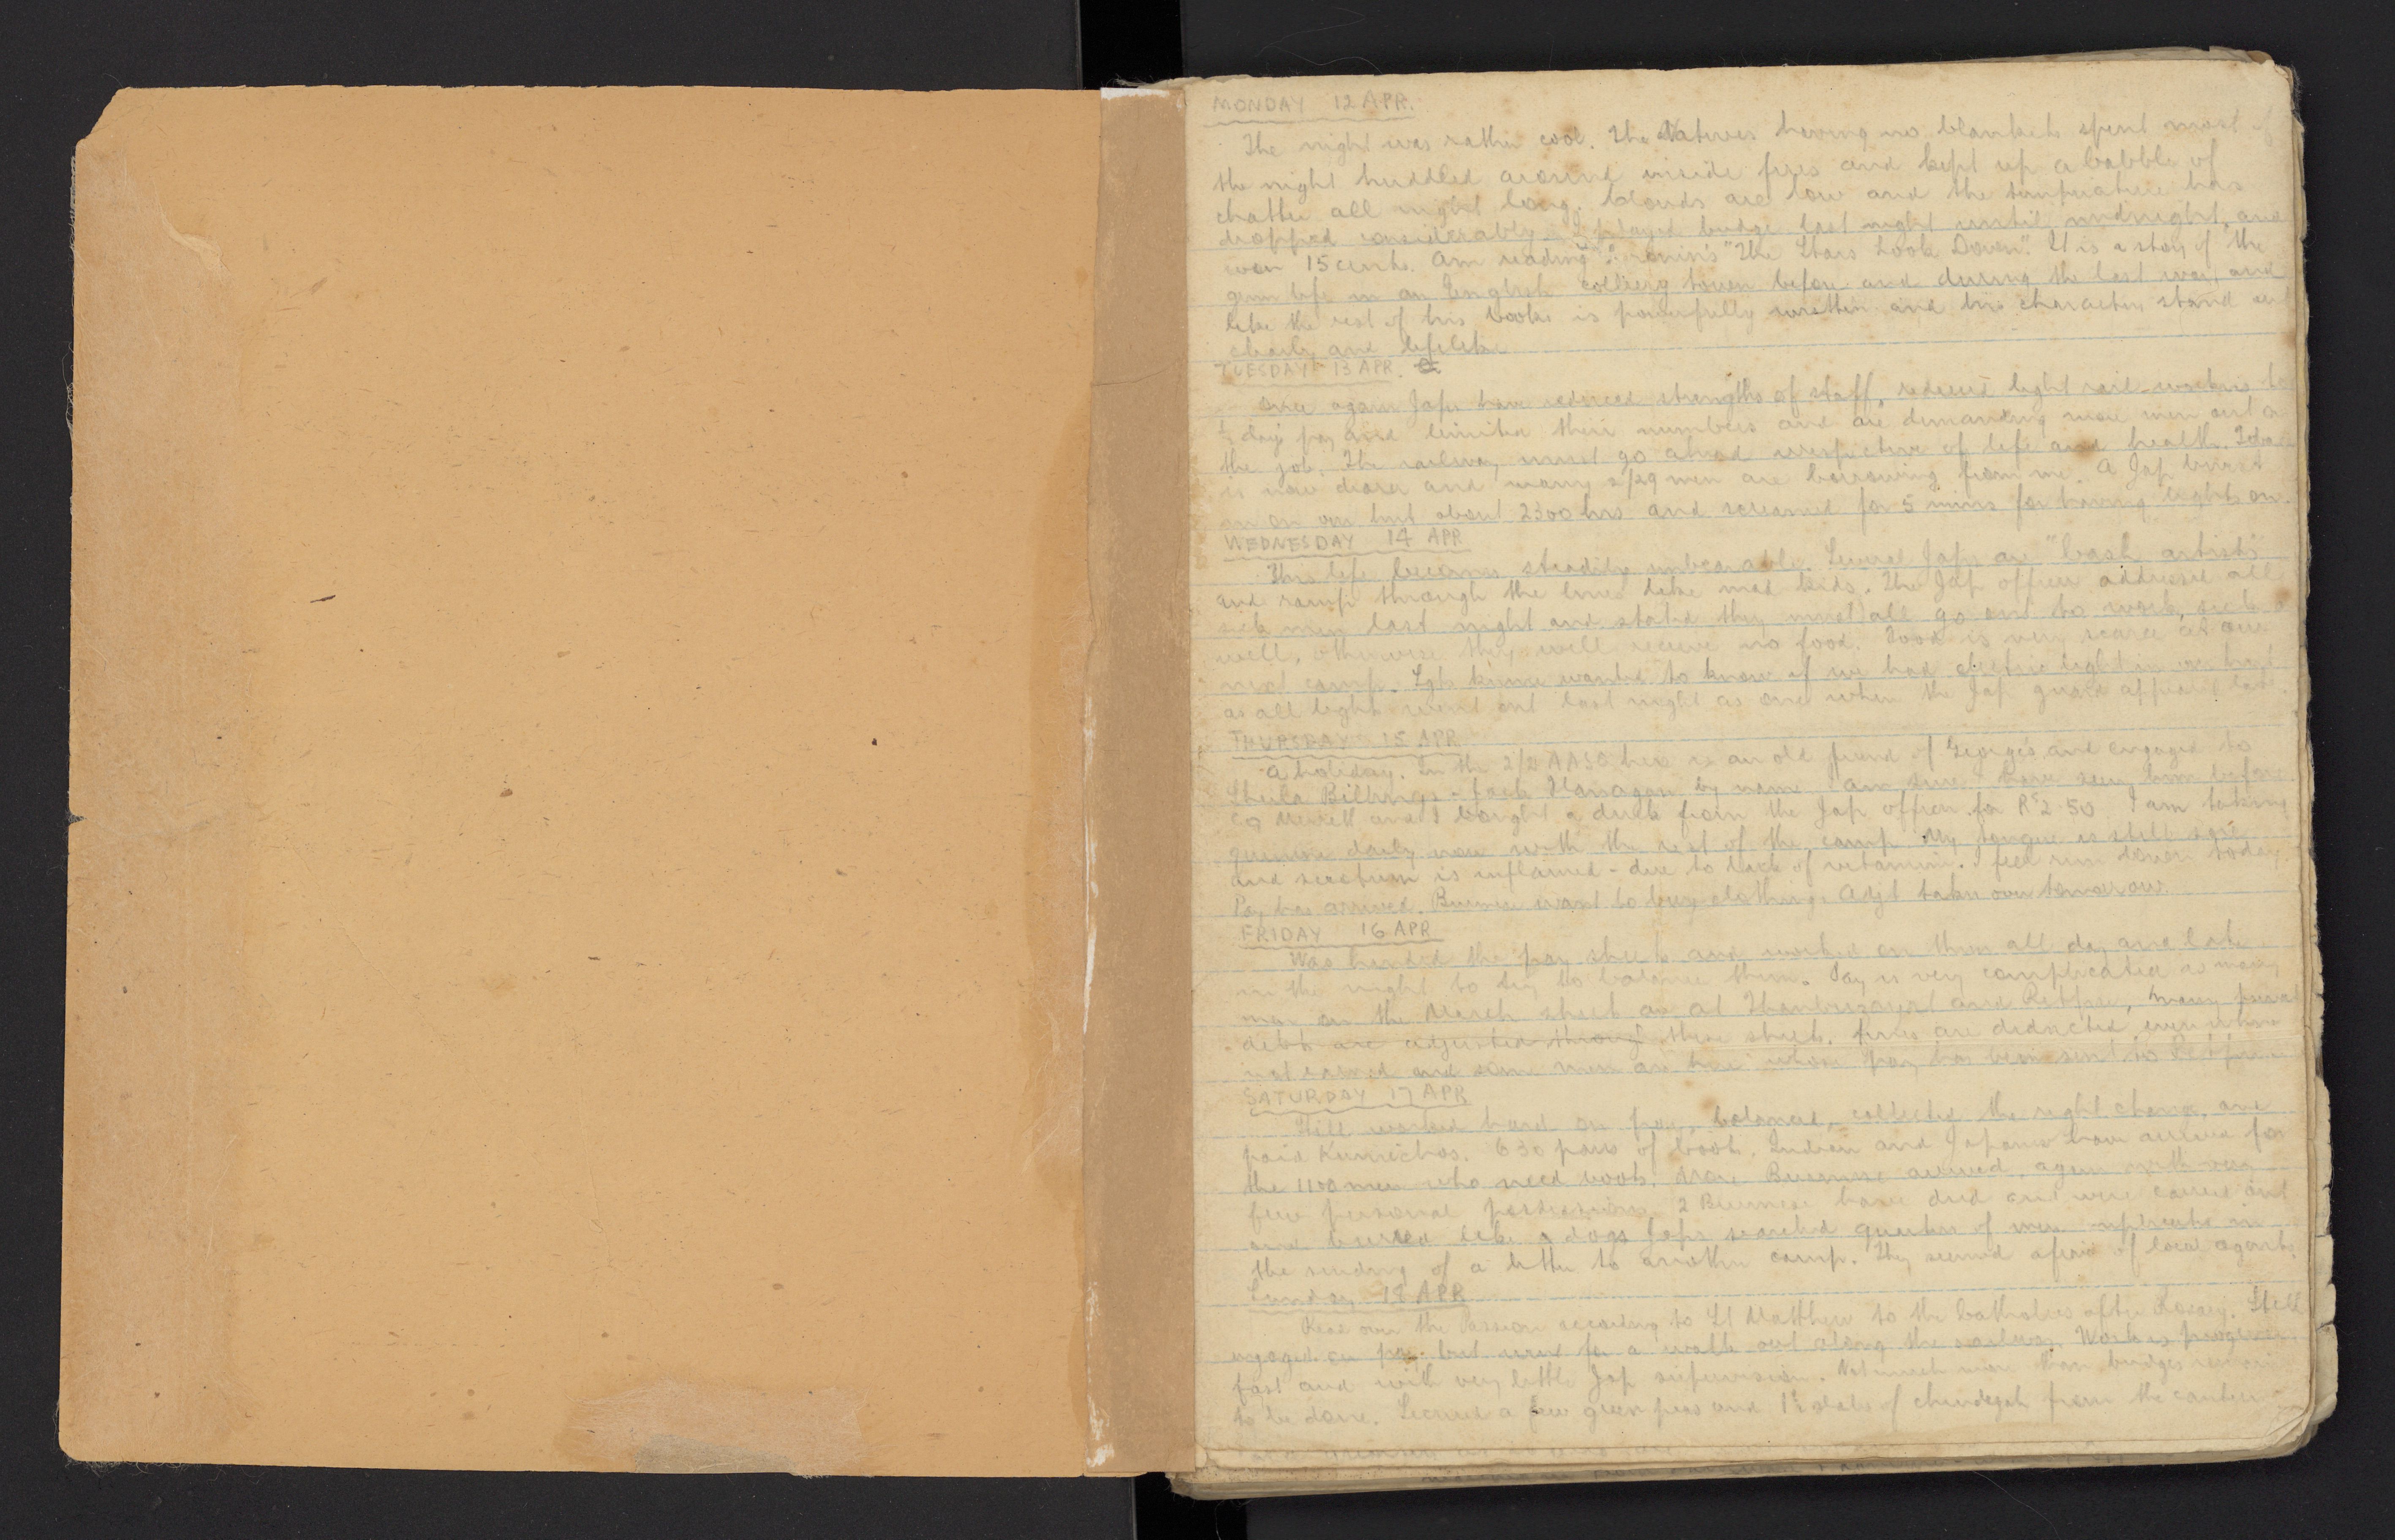 MONDAY 12 APR.
The night was rather cool. The Natives having no blankets spent most of
the night huddled around inside fires and kept up a babble of
chatter all night long. Clouds are low and the temperature has
dropped considerably. I played bridge last night until midnight and
won 15 cents. Am reading Cronin's "The Stars Look Down". It is a story of the
grim life in an English colliery town before and during the last war, and
like the rest of his books is powerfully written and his characters stand out
clearly and lifelike.
TUESDAY 13 APR.
Once again Japs have reduced strengths of staff, reduced light sick workers to
½ days pay and limited their numbers and are demanding more men out on
the job. The railway must go ahead irrespective of life and health. Tobacco
is now dearer and many 2/29 men are borrowing from me. A Jap burst
in on our hut about 2300 hrs and screamed for 5 mins for having lights on.
WEDNESDAY 14 APR
This life becomes steadily unbearable. Several Japs are "bash artists"
and romp through the lines like mad kids. The Jap officer addressed all
sick men last night and stated they must all go out to work, sick or
well, otherwise they will receive no food. Food is very scarce at our
next camp. wanted to know if we had electric light in our hut
as all lights went out last night as one when the Jap guard appeared
THURSDAY 15 APR
A holiday. In the 2/2 here is an old friend of George's and engaged to
Sheila Billings - Jack Flanagan by name. I am sure I have seen him before.
and I bought a duck from the Jap officer for Rs 2.50 I am taking
quinine daily now with the rest of the camp. My tongue is still sore
and scrotum is inflamed - due to lack of vitamins. I feel run down today.
Pay has arrived. Burmese want to buy clothing. Adjt takes over tomorrow.
FRIDAY 16 APR
Was handed the pay sheets and worked on them all day and late
in the night to try to balance them. Pay is very complicated as many
men on the March sheet are at Thanbuzayat and Retpu, many private
debts are adjusted through these sheets, fines are deducted even when
not earned and some men are here whose pay has been sent to Retpu.
SATURDAY 17 APR
Still worked hard on pay, balanced, collected the right change, and
paid Kumichos. 630 pairs of boots, Indian and Japanese have arrived for
the 1100 men who need boots. More Burmese arrived, again with very
few personal possessions. 2 Burmese have died and were carried out
and buried like dogs. Japs searched quarters of men implicated in
the sending of a letter to another camp. They seemed afraid of local agents.
Sunday 18 APR
Read over the Passion according to St Matthew to the Catholics after Rosary. Still
engaged on pay but went for a walk out along the railway. Work is progressing
fast and with very little Jap supervision. Not much more than bridges remain
to be done. Secured a few green peas and 1½ slabs of chindegah from the canteen